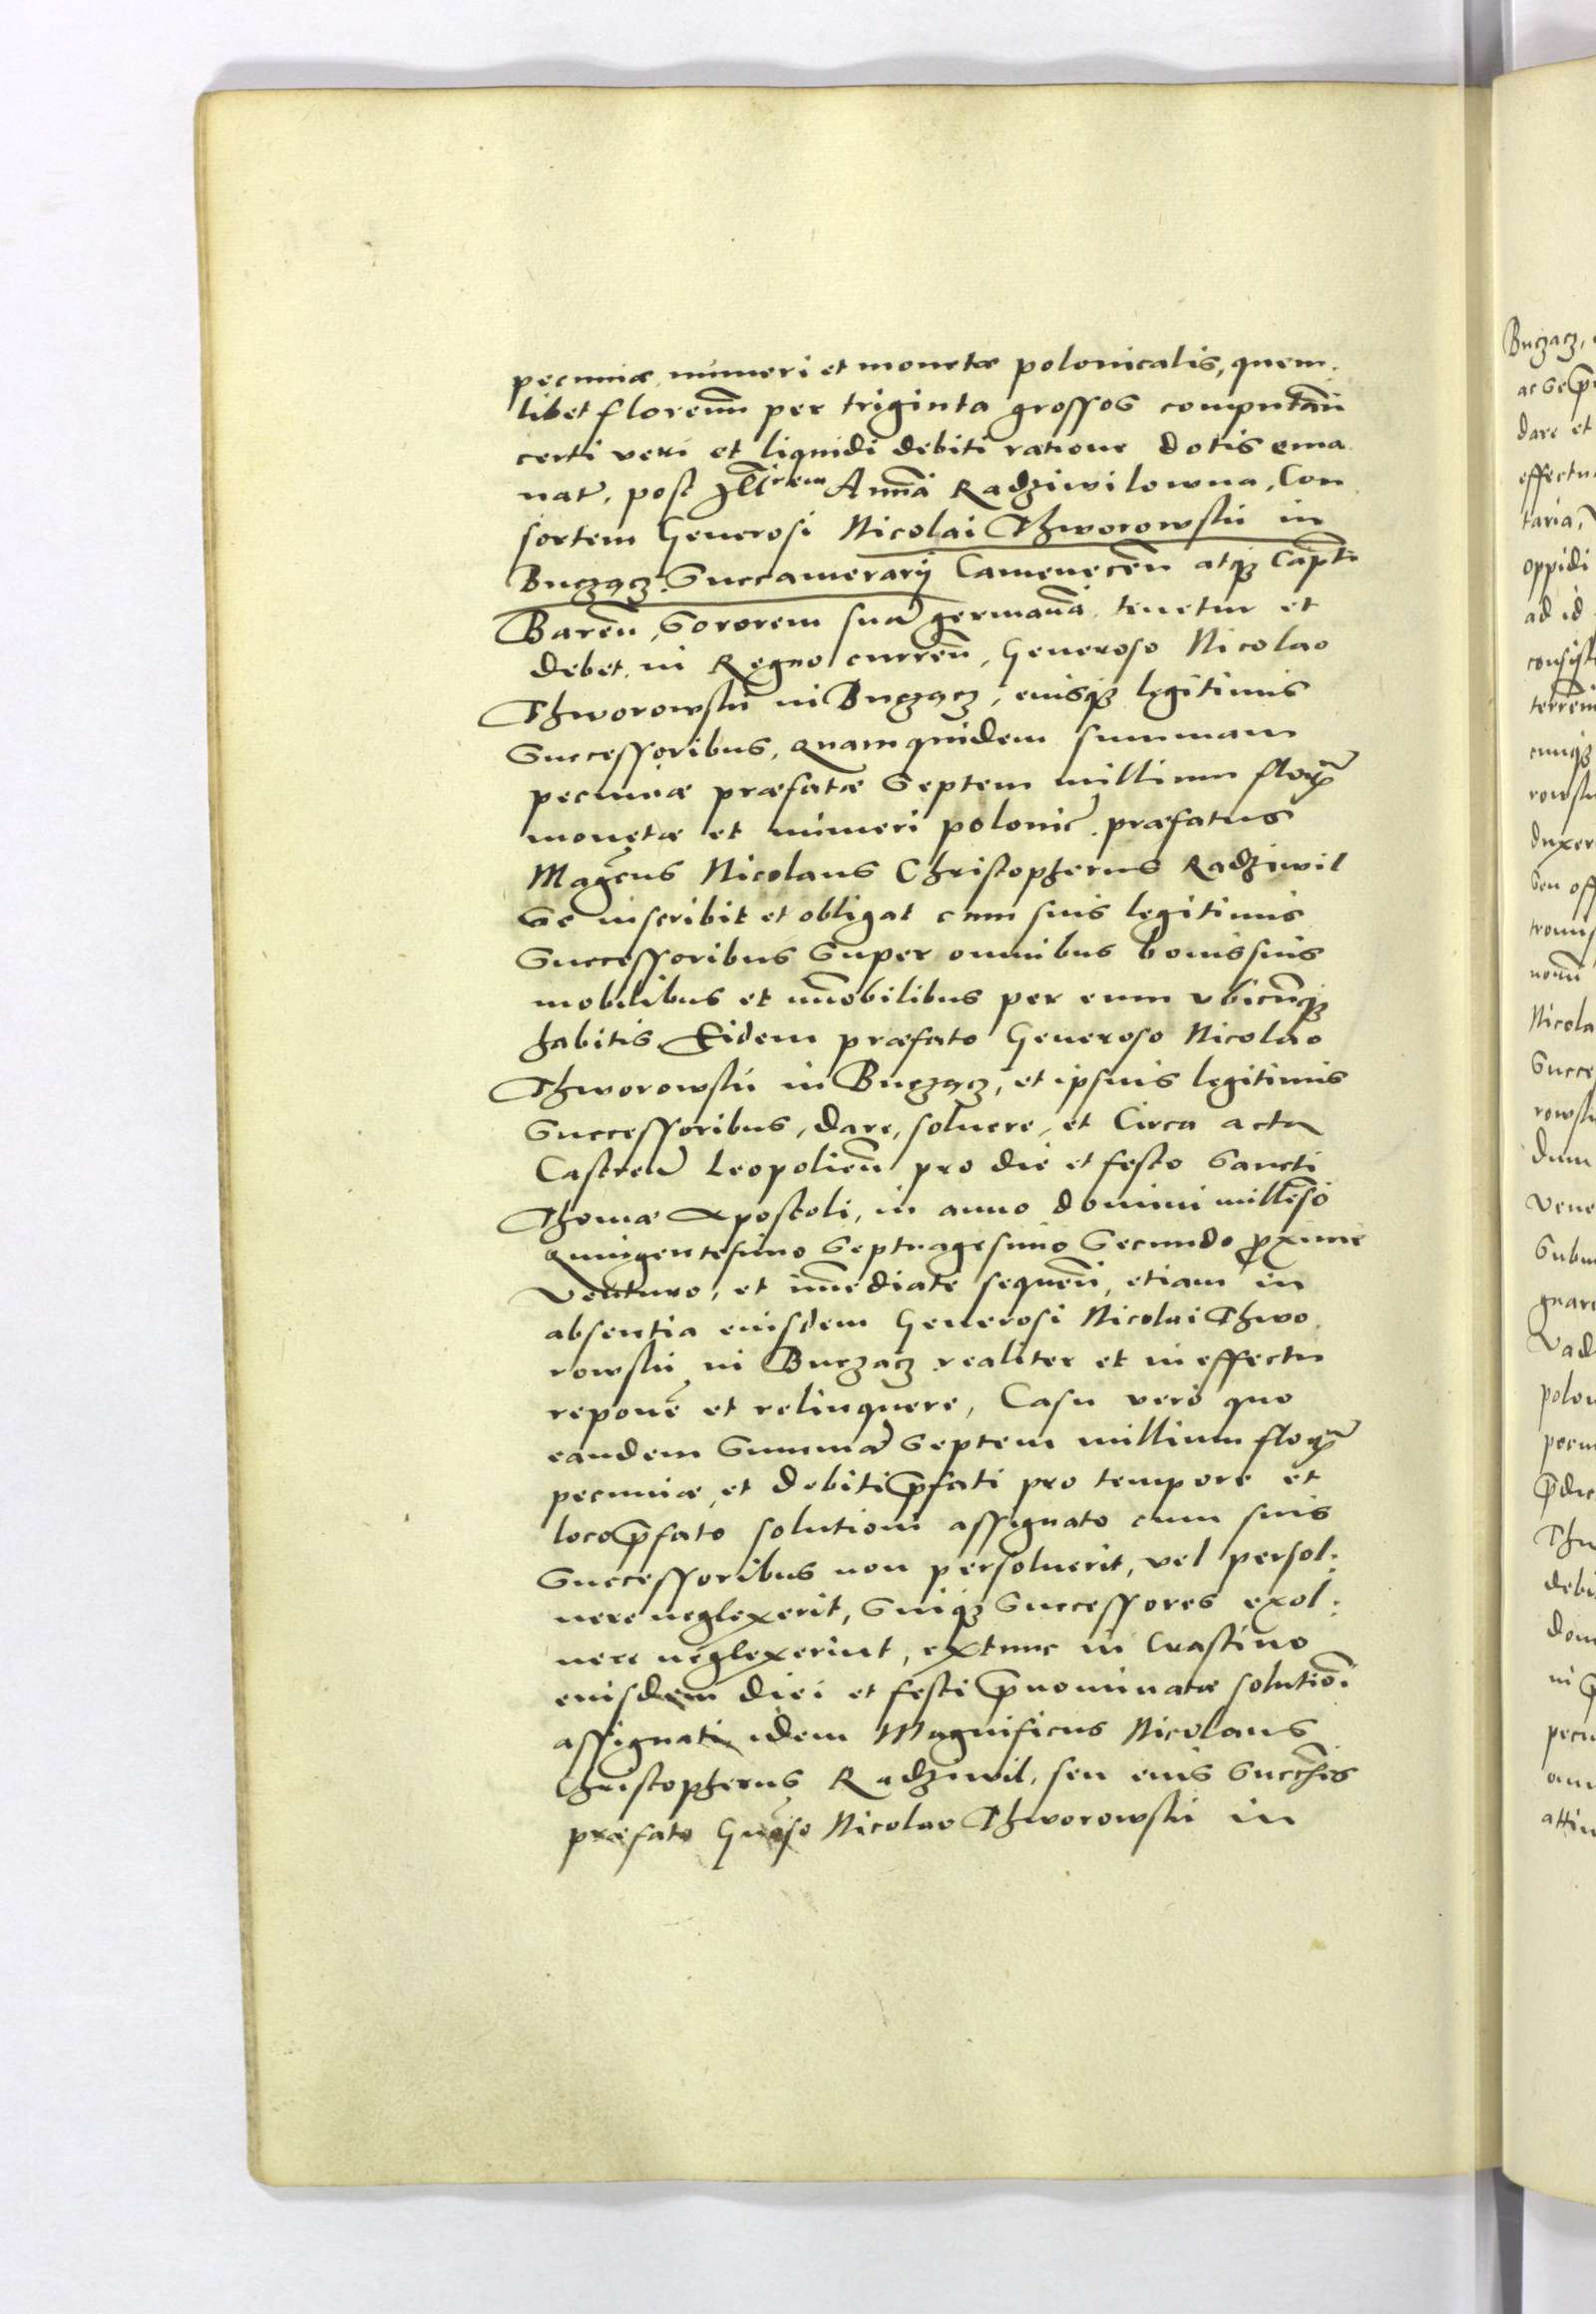 pecuniæ numeri et monetæ polonicalis, quem:
libet florenum per triginta grossos computan̄
certi veri et liquidi debiti ratione dotis ema
nat̄, post Ill̄rem Annā Radziwilowna, Con
sortem Generosi Nicolai Thworowski in
Buczacz. Succamerarij Camenecen̄ atq̨ Cap̄ti
Baren̄, Sororem suā germanā, tenetur et
debet, in Regno curren̄, Generoso Nicolao
Thworowski in Buczacz, eiusq̨ legitimis
Successoribus, quam quidem summam
pecuniæ præfatæ Septem millium flor̄
monetæ et numeri polonic̄. præfatus
Mag̃cus Nicolaus Christopherus Radziwil
Se inscribit et obligat cum suis legitimis
Successoribus Super omnibus bonis suis
mobilibus et im̄obilibus per eum vbicūq̨
habitis. Eidem præfato Generoso Nicolao
Thworowski in Buczacz, et ipsius legitimis
Successoribus, dare, soluere, et Circa acta
Castren̄ Leopolien̄ pro die et festo Sancti
Thomæ Apostoli, in anno domini millēsio
quingentesimo Septuagesimo Secundo p̄xime
Venturo, et im̄ediate sequen̄, etiam in
absentia eiusdem Generosi Nicolai Thwo
rowski in Buczacz realiter et in effectu
reponē et relinquere, Casu vero quo
eandem Summā Septem millium flor̄
pecuniæ, et debiti p̄fati pro tempore et
loco p̄fato solutioni assignato cum suis
Successoribus non persoluerit, vel persol:
uere neglexerit, Suiq̨ Successores exol:
uere neglexerint, extunc in Crastino
eiusdem diei et festi p̄nominatæ solutiōi
assignati, idem Magnificus Nicolaus
Christopherus Radziwil, seu eius Succ̄res
præfato Gn̄oso Nicolao Thworowski in
Buczacz,
dare et
oppidi
ad id